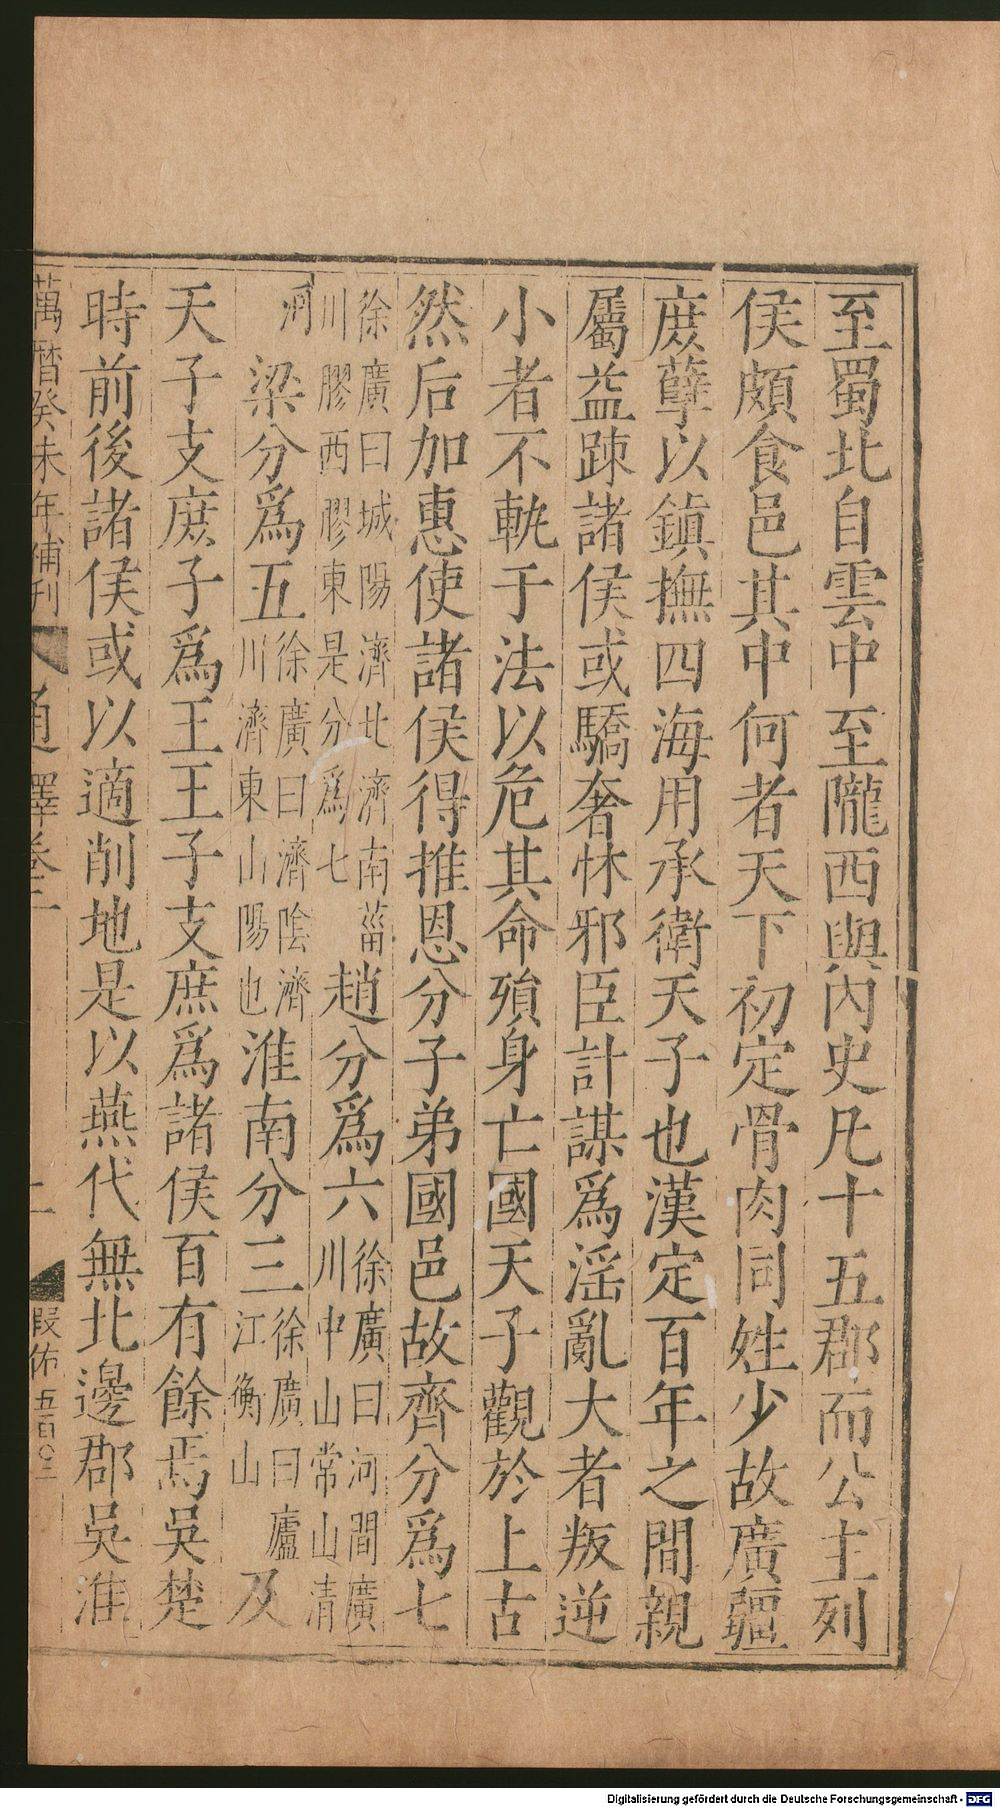 至蜀北自雲中至隴西與內史凡十五郡而公主列
侯頗食邑其中何者天下初定骨肉同姓少故廣疆
庶孽以鎮撫四海用承衛天子也漢定百年之間親
屬益踈諸侯或驕奢怵邪臣計謀爲淫亂大者叛逆
小者不軌于法以危其命殞身亡國天子觀於上古
然后加惠使諸侯得推恩分子弟國邑故齊分爲七
徐廣曰城陽濟北濟南菑
川膠西膠東是分爲七
趙分爲六
徐廣曰河間廣
川中山常山清
河
梁分爲五
徐廣曰濟陰濟
川濟東山陽也
淮南分三
徐廣曰廬
江衡山
及
天子支庶子爲王王子支庶爲諸侯百有餘焉吳楚
時前後諸侯或以適削地是以燕代無北邊郡吳淮
萬曆癸未年補刊
通釋卷二
段佑 五百〇二
Digitalisierung gefördert durch die Deutsche Forschungsgemeinschaft - DFG